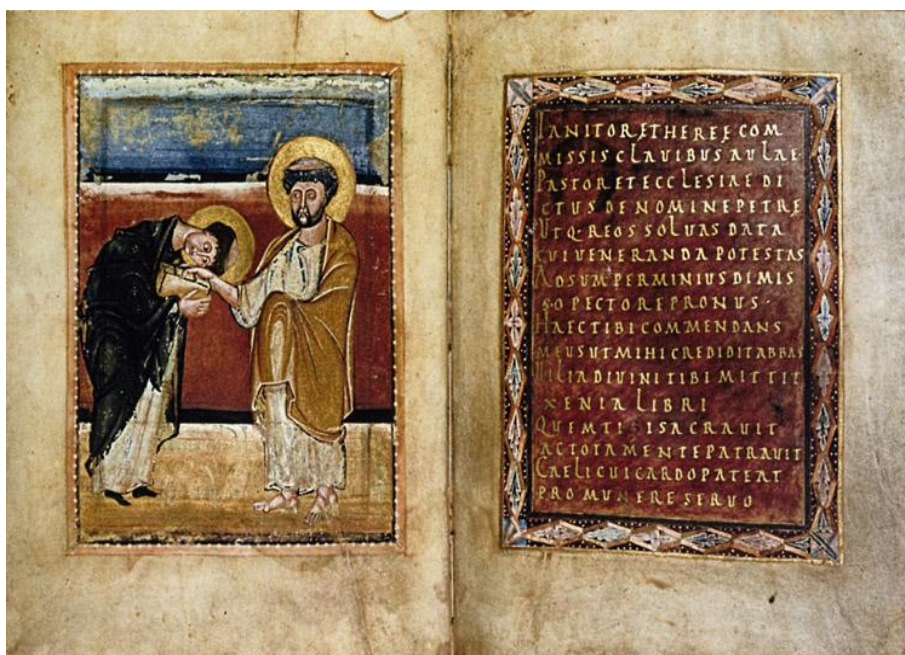 IANITOR ETHEREĘ COM
MISSIS CLAVIBUS AULAE
PASTOR ET ECCLESIAE DI
CTUS DE NOMINE PETRĘ
UTQ·REOS SOLUAS DATA
CUI VENERANDA POTESTAS
ADSUM PERMINIUS DIMIS
SO PECTORE PRONUS·
HAEC TIBI COMMENDANS
MEUS UT MIHI CREDIDIT ABBAS
UILIA DIUINI TIBI MITTIT
XENIA LIBRI
QUEM TIBI SACRAUIT
AC TOTA MENTE PATRAUIT
CAELI CUI CARDO PATEAT
PRO MUNERE SERUO